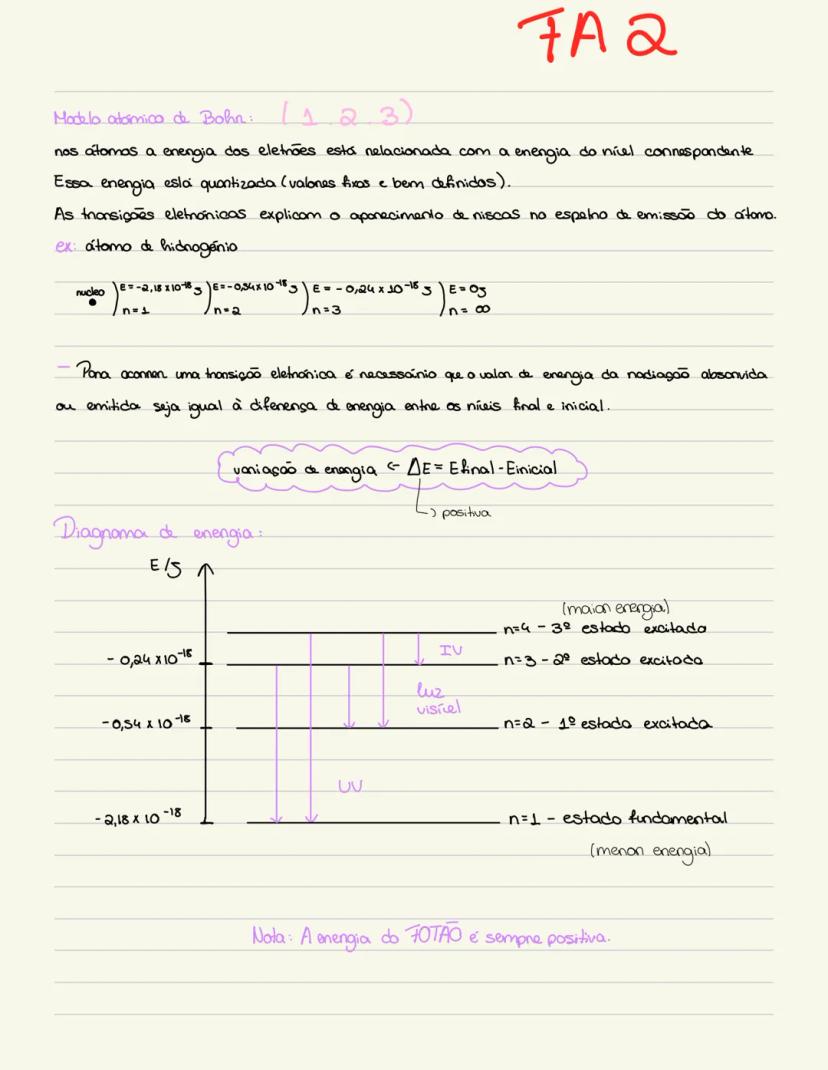 FA 2
Modelo atómico de Bohr: (1 2 3)
nos átomos a energia dos eletrões está relacionada com a energia do nível correspondente
Essa energia está quantizada (valores fixos e bem definidos).
As transições eletrónicas explicam o aparecimento de riscas no espetro de emissão do átomo.
ex: átomo de hidrogénio
nucleo E = -2,18 x 10⁻¹⁸ J E = -0,54 x 10⁻¹⁸ J E = -0,24 x 10⁻¹⁸ J E = 0J
n = 1 n = 2 n = 3 n = ∞
- Para ocorrer uma transição eletrónica é necessário que o valor de energia da radiação absorvida
ou emitida seja igual à diferença de energia entre os níveis final e inicial.
variação de energia ← ΔE = Efinal - Einicial
↳ positiva
Diagrama de energia:
E/J
(maior energia)
n=4 - 3º estado excitado
IV
- 0,24 x 10⁻¹⁸ n=3 - 2º estado excitado
luz
visível
- 0,54 x 10⁻¹⁸ n=2 - 1º estado excitado
UV
- 2,18 x 10⁻¹⁸ n=1 - estado fundamental
(menor energia)
Nota: A energia do FOTÃO é sempre positiva.